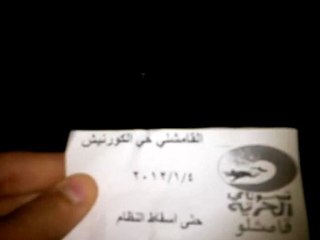 القامشلي حي الكورنيش
٢٠١٢/١/٤
حتى اسقاط النظام
الحرية
قامشلو